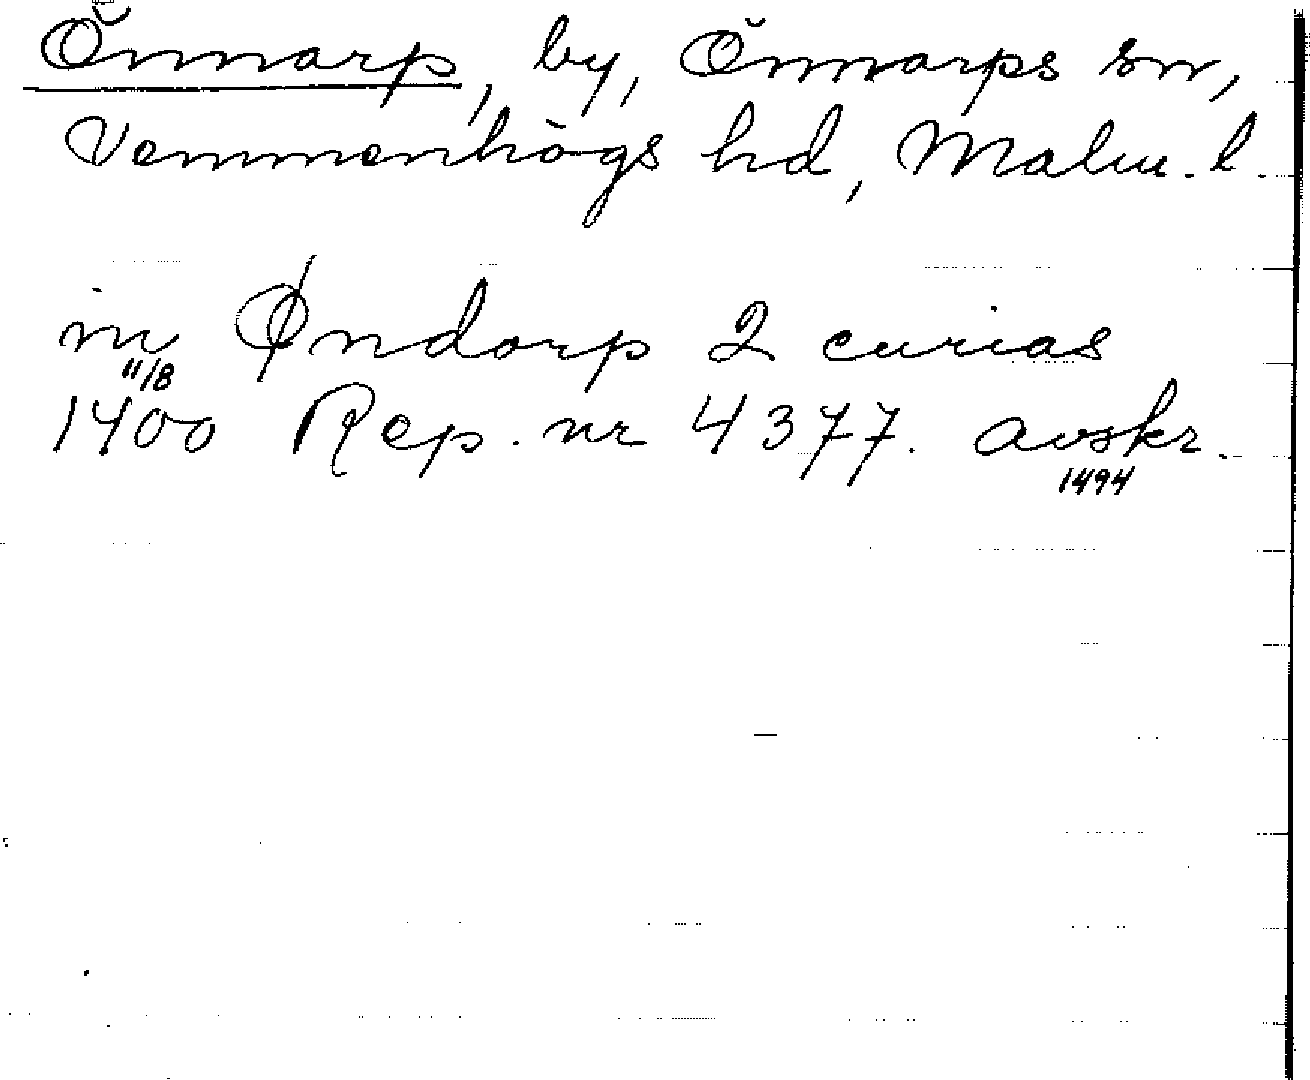 Önnarp, by, Önnarps sn,
Vemmenhögs hd, Malm. l.
in Øndorp 2 curias
11/8
1400 Rep. nr 4377. avskr.
1494